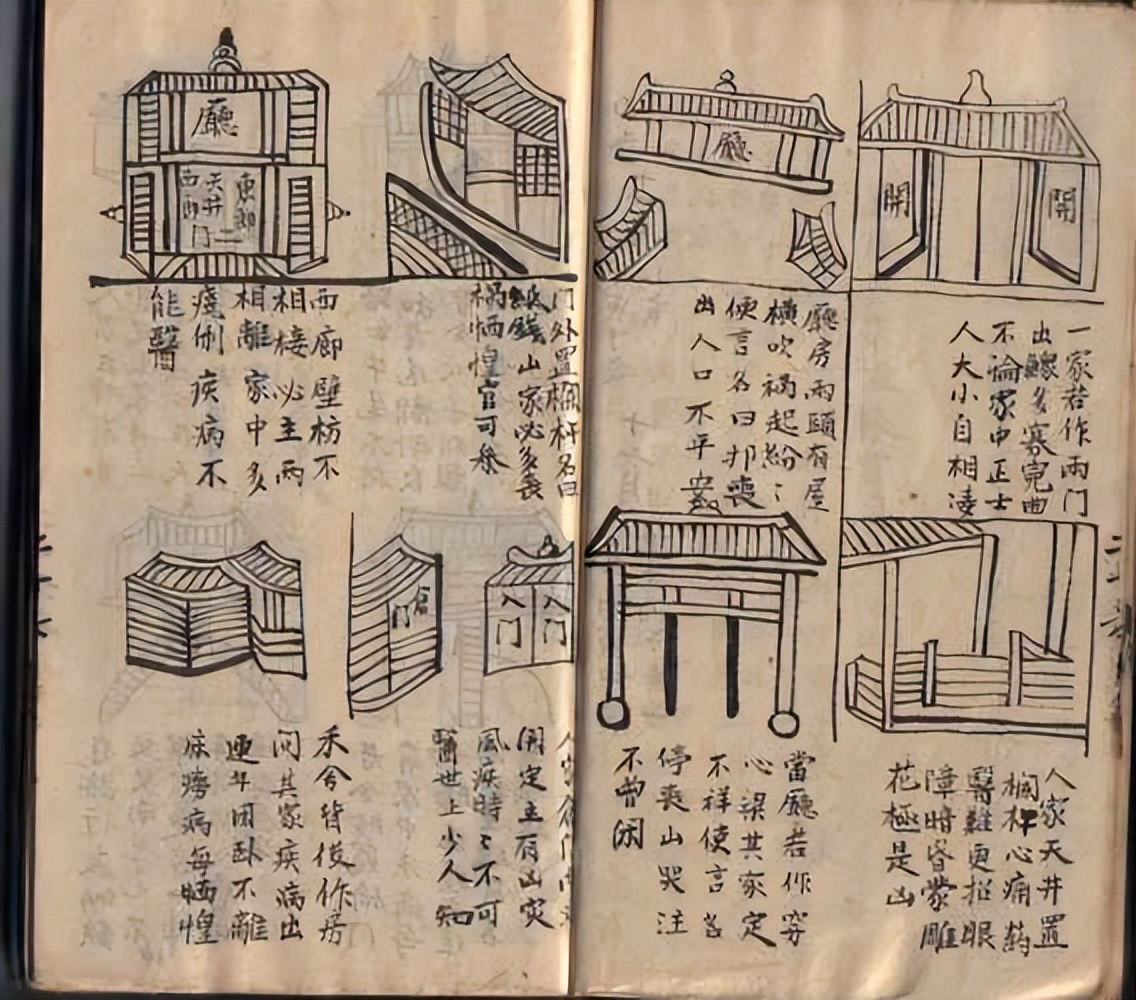 開
開
一家若作兩門
出鰥多寡冤曲
不論家中正士
人大小自相凌
廳
廳房兩頭有屋
橫吹禍起紛〻
便言名曰邦喪
出人口不平安
人家天井置
欄杆心痛葯
醫難更招眼
障暗昏蒙雕
花極是凶
當廳若作穿
心梁其家定
不祥便言名
停喪山哭注
不曾闲
門外置欄杆名曰
紙錢山家必多喪
禍恓惶官可參
廳
天井
門
西廊壁枋不
相接必主兩
相離家中多
疾病不
能醫
入門
入門
倉門
開定主有凶灾
風疾時〻不可
醫世上少人知
禾舍皆後作房
間其家疾病出
連年困臥不離
床癆病每恓惶